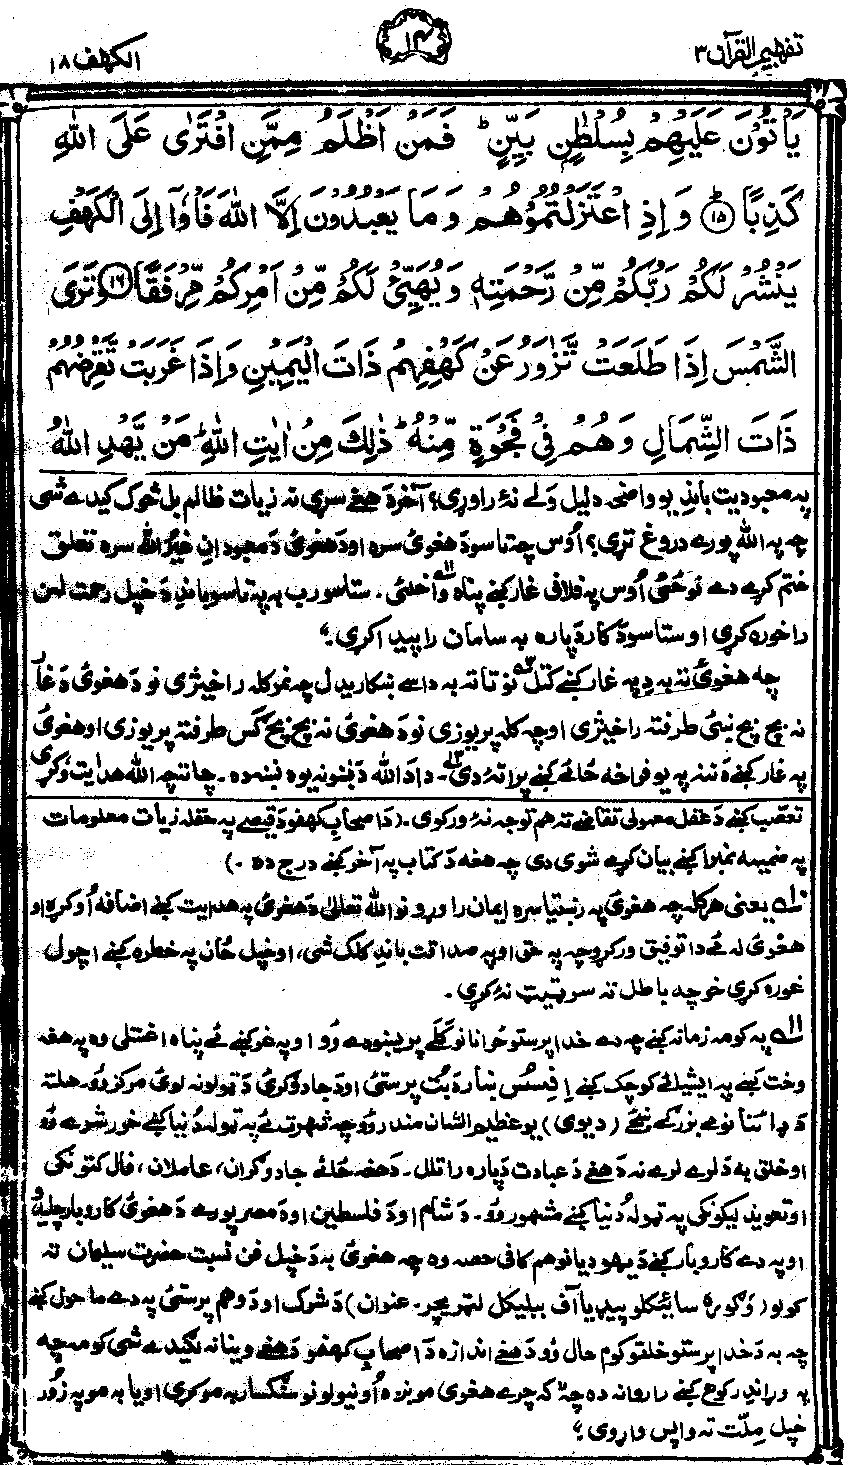 تفهيم القرآن ٣
١٤
الكهف ١٨
يَأْتُوْنَ عَلَيْهِمْ بِسُلْطٰنٍ بَيِّنٍ ؕ فَمَنْ اَظْلَمُ مِمَّنِ افْتَرٰى عَلَى اللّٰهِ
كَذِبًا ؕ ۱۵ وَ اِذِ اعْتَزَلْتُمُوْهُمْ وَ مَا يَعْبُدُوْنَ اِلَّا اللّٰهَ فَاْوٗۤا اِلَى الْكَهْفِ
يَنْشُرْ لَكُمْ رَبُّكُمْ مِّنْ رَّحْمَتِهٖ وَ يُهَيِّئْ لَكُمْ مِّنْ اَمْرِكُمْ مِّرْفَقًا ۱۶ وَتَرَى
الشَّمْسَ اِذَا طَلَعَتْ تَّزٰوَرُ عَنْ كَهْفِهِمْ ذَاتَ الْيَمِيْنِ وَ اِذَا غَرَبَتْ تَّقْرِضُهُمْ
ذَاتَ الشِّمَالِ وَ هُمْ فِيْ فَجْوَةٍ مِّنْهُ ؕ ذٰلِكَ مِنْ اٰيٰتِ اللّٰهِ ؕ مَنْ يَّهْدِ اللّٰهُ
په معبوديت باندِ يو واضحه دليل ولے نۀ راوړى؟ آخر دَ هغے سړى نه زيات ظالم بل څوک کيدے شى
چه په الله پورے دروغ تړى؟ اُوس چه تاسو دَ هغوئ سره او دَ هغوئ دَ معبودانِ غيرُ الله سره تعلق
ختم کړے دے نو ځئ اُوس په فلاڼى غار کښے پناه واخلئ۔ ستاسو رب به په تاسو باندِ دَ خپل رحمت لمن
راخوره کړى او ستاسو دَ کار دَپاره به سامان راپيدا کړى.
چه هغوئ ته به دِ په غار کښے کتل نو تا ته به داسے ښکاريدل چه نمر کله راخيژى نو دَ هغوئ دَ غار
نه بچ بچ ښئ طرف ته راخيژى او چه کله پريوزى نو دَ هغوئ نه بچ بچ ګس طرف ته پريوزى او هغوئ
په غار کښے دننه په يو فراخه ځائے کښے پراتۀ دى۔ دا دَ الله دَ نښو نه يوه نښه ده۔ چا ته چه الله هدايت وکړى
تعصّب کښے دَ عقل معمولى تقاضے ته هم توجه نۀ ورکوى۔ (دَ اصحابِ کهف دَ قيصے په حقله زيات معلومات
په ضميمه نمبر ١ کښے بيان کړے شوى دى چه هغه دَ کتاب په آخر کښے درج ده۔)
يعنى هر کله چه هغوئ په رښتيا سره ايمان راوړو نو الله تعالىٰ دَ هغوئ په هدايت کښے اضافه اُوکړه او
هغوئ له ئے دا توفيق ورکړو چه په حق او په صداقت باندِ کلک شى، او خپل ځان په خطره کښے اچول
غوره کړى خو چه باطل ته سر ټيټ نۀ کړى۔
په کومه زمانه کښے چه دے خدا پرستو ځوانانو کلے پريښودے وُو او په غرکښے ئے پناه اغستلى وه په هغه
وخت کښے په ايشيائے کوچک کښے اِفِسُس ښار دَ بُت پرستئ او دَ جادُوګرئ دَ ټولو نه لوئ مرکز وُو۔ هلته
دَ ډائنا نومے بزرګے ښځے (ديوى) يو عظيم الشان مندر وُو چه شهرت ئے په ټوله دُنيا کښے خور شوے وُو
او خلق به دَ لرے لرے نه دَ هغے دَ عبادت دَپاره راتلل۔ دَ هغه ځائے جادوګران، عاملان، فال کتونکى
او تعويذ ليکونکى په ټوله دُنيا کښے مشهور وُو۔ دَ شام او دَ فلسطين او دَ مصر پورے دَ هغوئ کاروبار چليدو
او په دے کاروبار کښے دَ يهوديانو هم کافى حصه وه چه هغوئ به دَ خپل فن نسبت حضرت سليمان ته
کولو (وګوره سائيکلوپيډيا آف ببليکل لټريچر۔ عنوان) دَ شرک او دَ وهم پرستئ په دے ماحول کښے
چه به دَ خدا پرستو خلقو کوم حال وُو دَ هغے اندازه دَ اصحابِ کهف دَ هغے وينا نه لګيدے شى کومه چه
په وړاندِ رکوع کښے راروانه ده چه که چرے هغوئ موږه اُونيولو نو سنګسار به مو کړى او يا به مو په زور
خپل مِلّت ته واپس واړوى؟